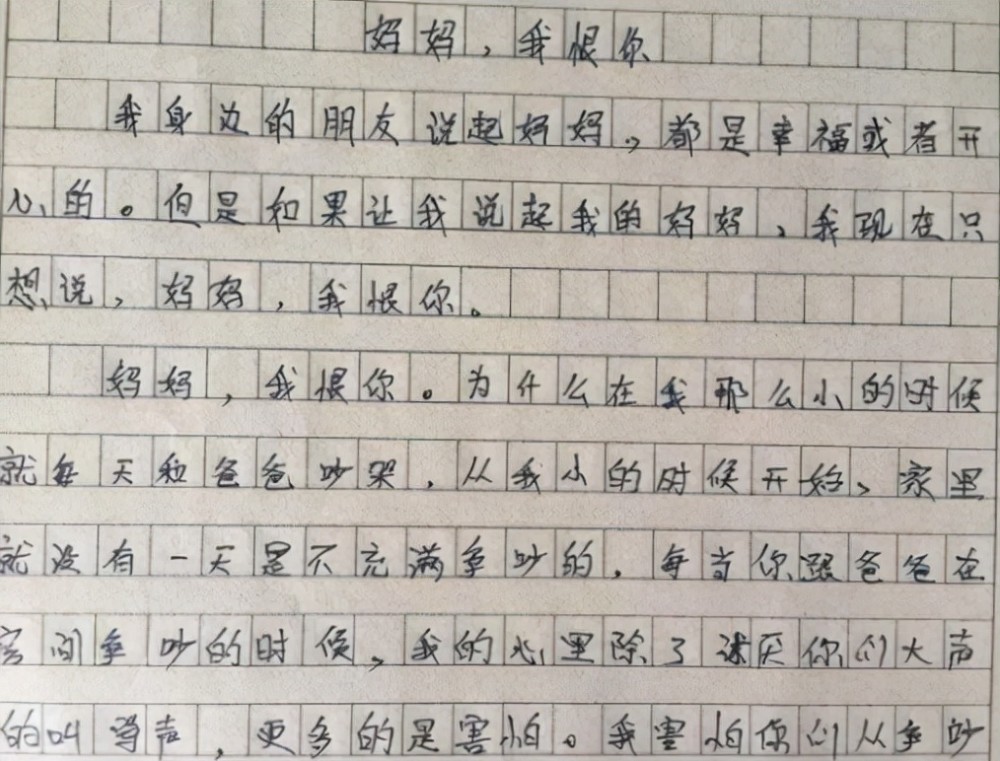 妈妈，我恨你
我身边的朋友说起妈妈，都是幸福或者开
心的。但是如果让我说起我的妈妈，我现在只
想说，妈妈，我恨你。
妈妈，我恨你。为什么在我那么小的时候
就每天和爸爸吵架，从我小的时候开始、家里
就没有一天是不充满争吵的，每当你跟爸爸在
房间争吵的时候，我的心里除了讨厌你们大声
的叫声，更多的是害怕。我害怕你们从争吵